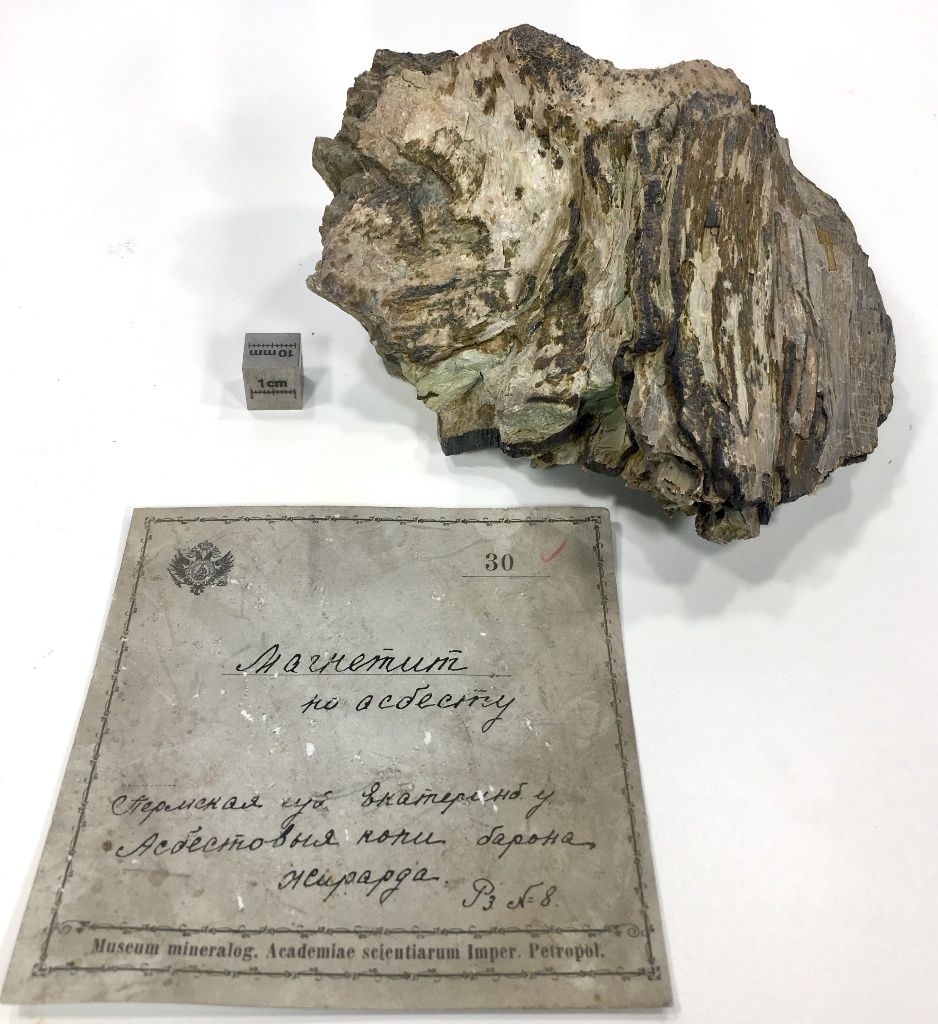 10 mm
1 cm
30
Магнетит
по асбесту
Пермская губ Екатеринб. у.
Асбестовыя копи барона
Жирарда.
Рз № 8.
Museum mineralog. Academiae scientiarum Imper. Petropol.